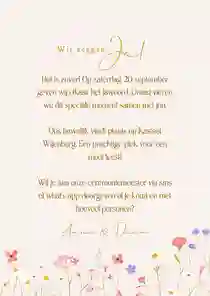 Wij zeggen Ja!
Het is zover! Op zaterdag 20 september
geven wij elkaar het jawoord. Graag vieren
we dit speciale moment samen met jou.
Ons huwelijk vindt plaats op kasteel
Wijenburg. Een prachtige plek voor een
mooi feest!
Wil je aan onze ceremoniemeester via sms
of whatsapp doorgeven of je komt en met
hoeveel personen?
&